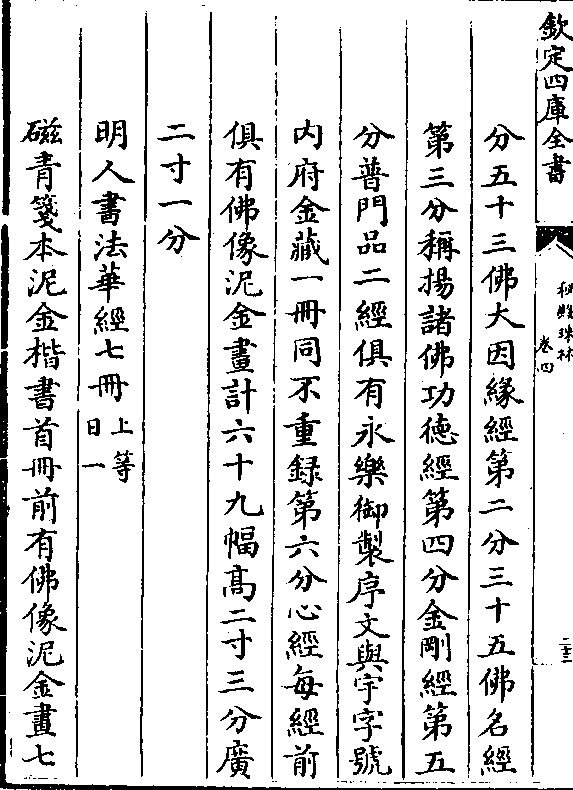 欽定四庫全書
秘殿珠林
卷四
二十三
分五十三佛大因緣經第二分三十五佛名經
第三分稱揚諸佛功德經第四分金剛經第五
分普門品二經俱有永樂御製序文與宇字號
内府金藏一冊同不重録第六分心經每經前
俱有佛像泥金畫計六十九幅髙二寸三分廣
二寸一分
明人書法華經七冊上等
日一
磁青箋本泥金楷書首冊前有佛像泥金畫七